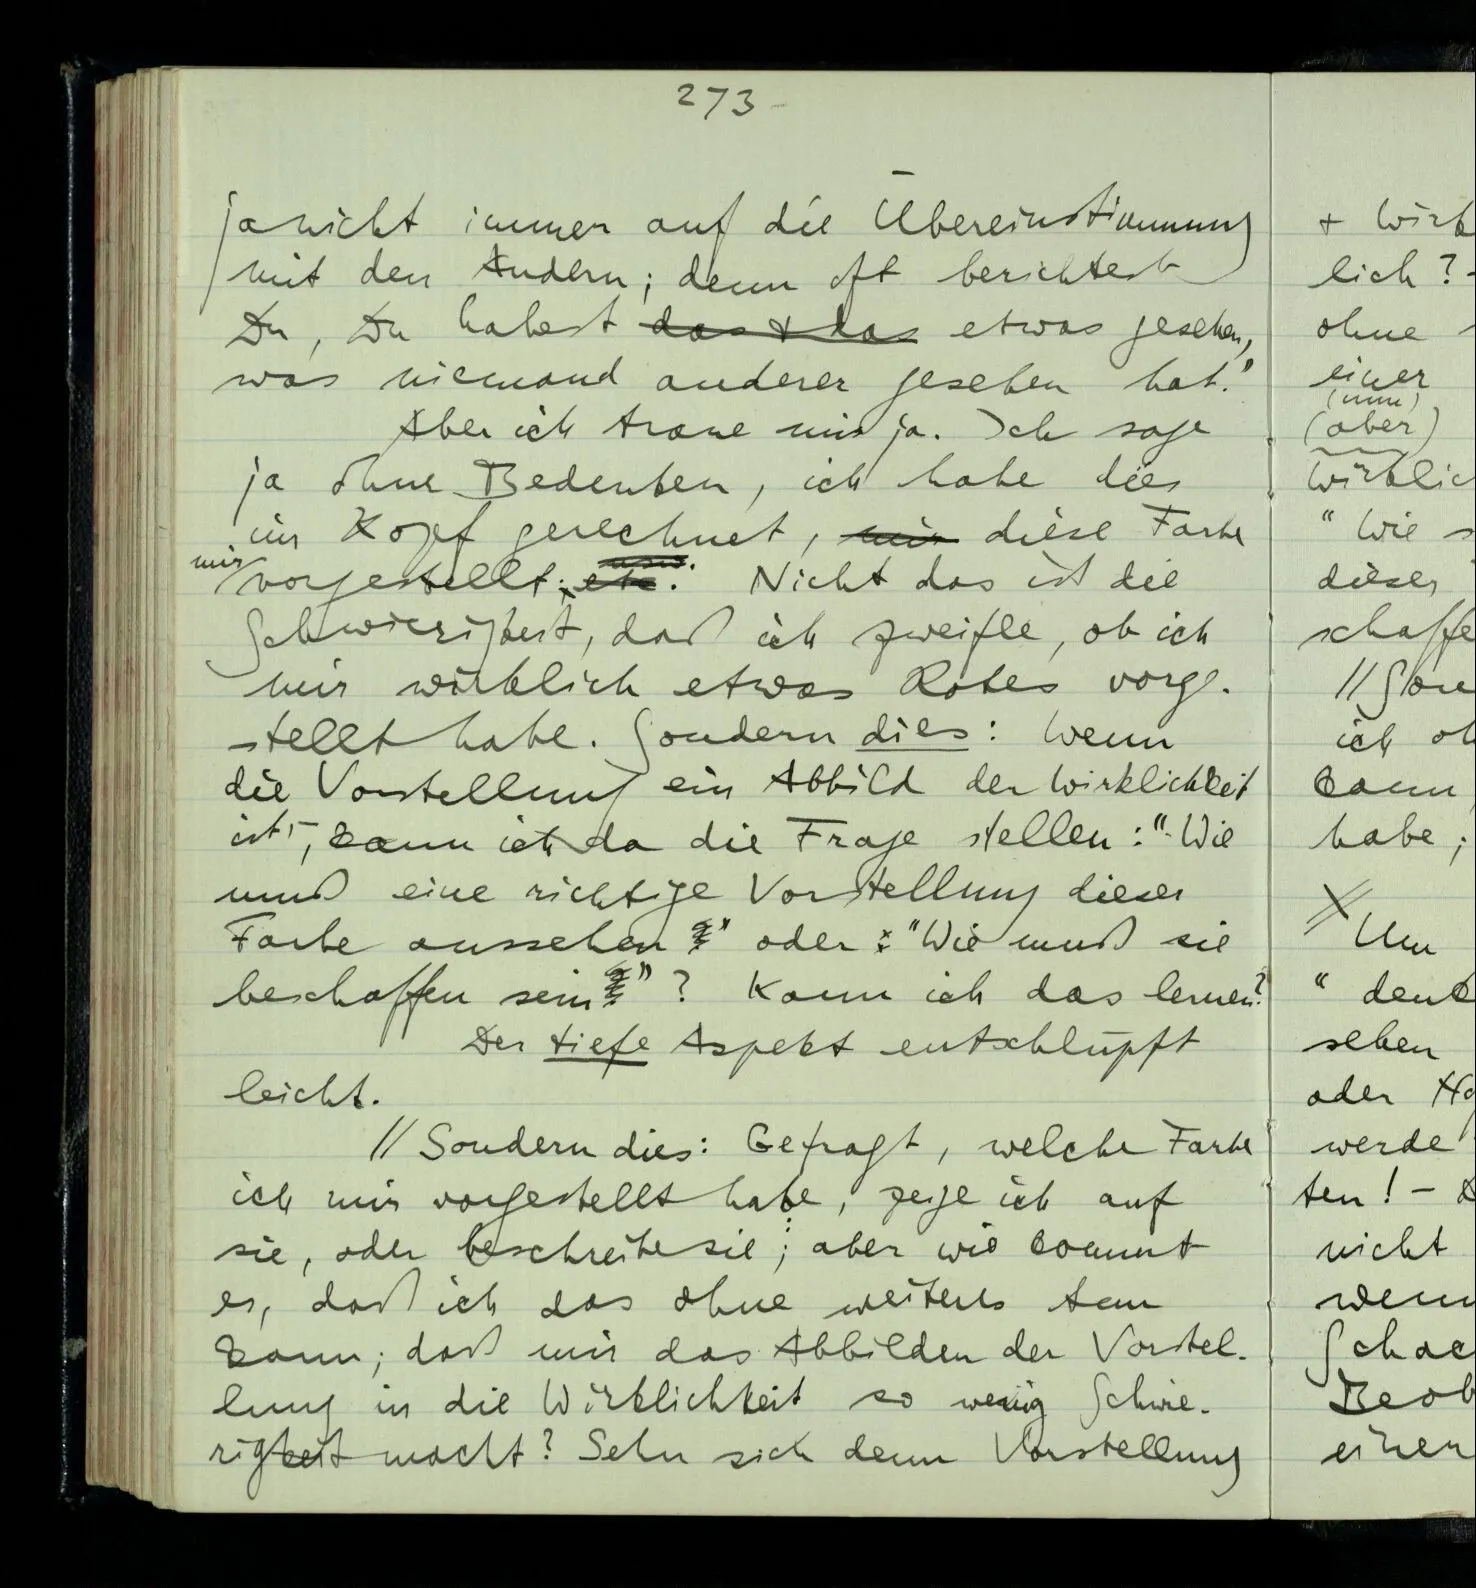 273
ja nicht immer auf die Übereinstimmung
mit den Andern; denn oft berichtest
Du, Du habest das & das etwas gesehen,
was niemand anderer gesehen hat."
Aber ich traue mir ja. Ich sage
ja ohne Bedenken, ich habe dies
im Kopf gerechnet, mir diese Farbe
mir vorgestellt; etc. usw. Nicht das ist die
Schwierigkeit, daß ich zweifle, ob ich
mir wirklich etwas Rotes vorge-
stellt habe. Sondern dies: Wenn
die Vorstellung ein Abbild der Wirklichkeit
ist –, kann ich da die Frage stellen: "Wie
muß eine richtige Vorstellung dieser
Farbe aussehen" oder: "Wie muß sie
beschaffen sein"? Kann ich das lernen?
Der tiefe Aspekt entschlüpft
leicht.
// Sondern dies: Gefragt, welche Farbe
ich mir vorgestellt habe, zeige ich auf
sie, oder beschreibe sie; aber wie kommt
es, daß ich das ohne weiteres tun
kann; daß mir das Abbilden der Vorstel-
lung in die Wirklichkeit so wenig Schwie-
rigkeit macht? Sehn sich denn Vorstellung
& Wirk
lich? -
ohne
einer
(nun)
(aber)
wirklic
" Wie s
dieser
schaffe
// Son
ich
kann
habe;
Um
" denk
sehen
oder
werde
ten! –
nicht
wenn
Schac
Beob
einer